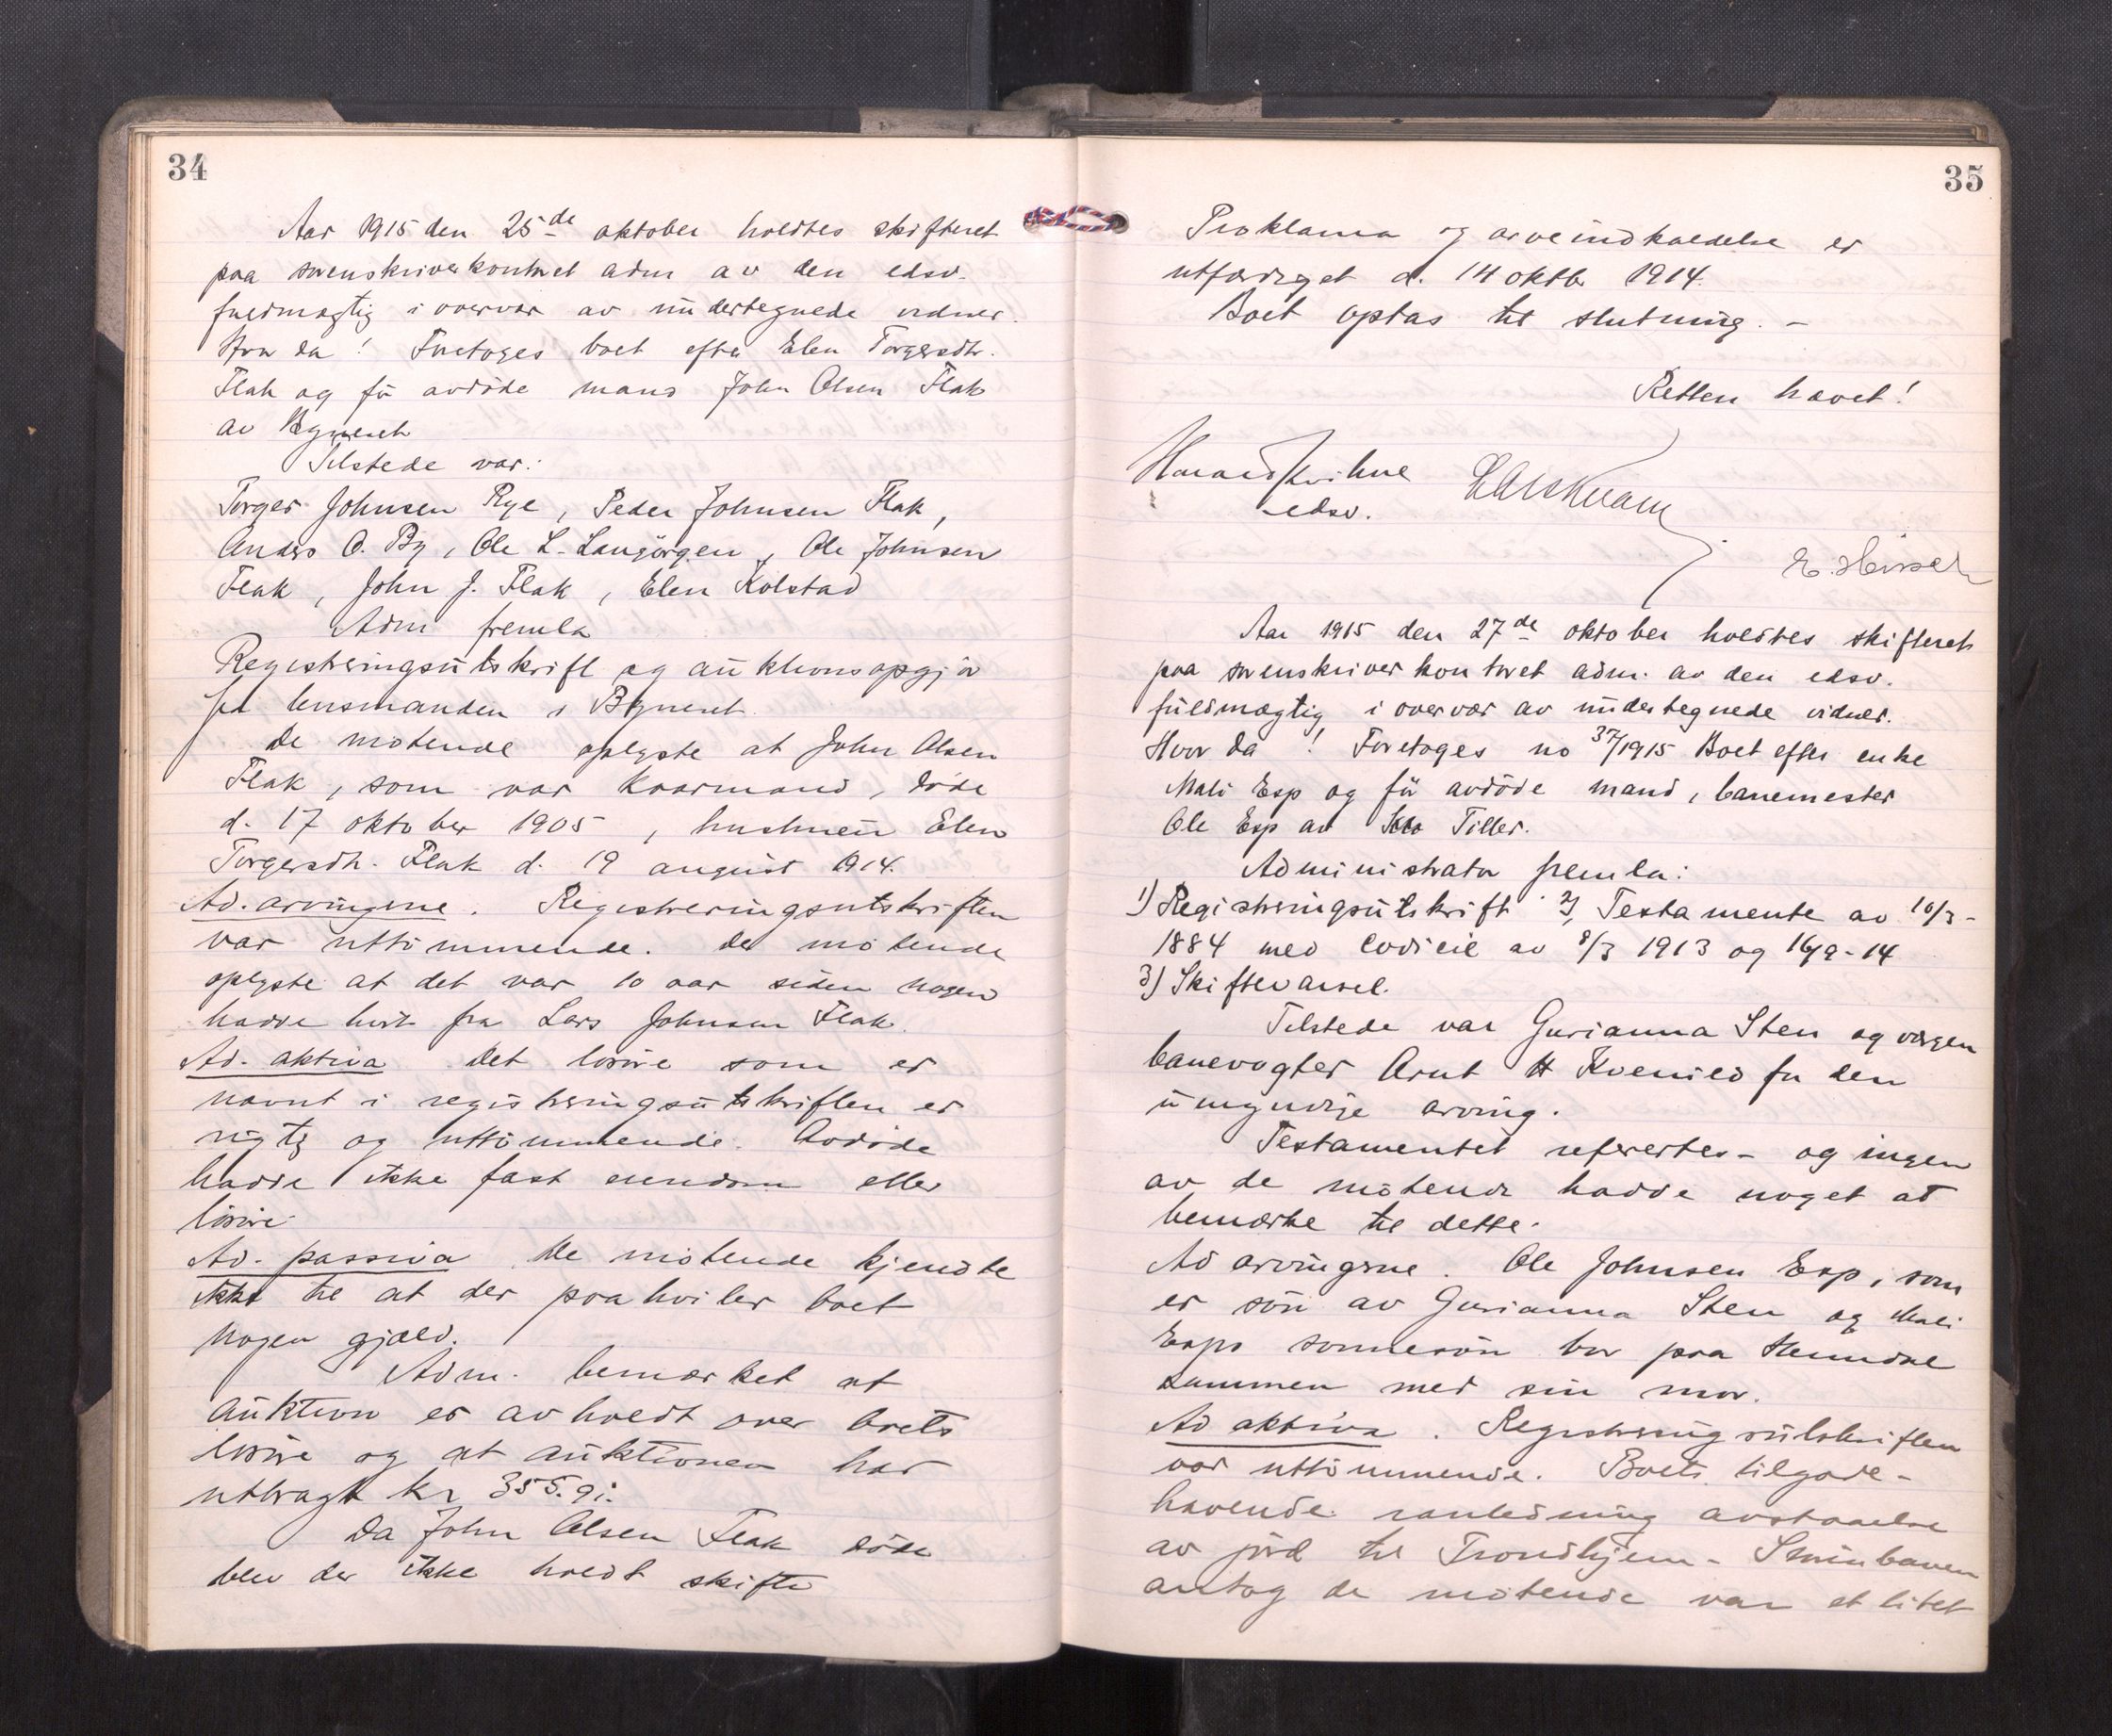 34
Aar 1915 den 25de oktober holdtes skifteret
paa sorenskriverkontoret adm av den edsv.
fuldmægtig i overvær av undertegnede vidner.
Hvor da! Foretoges boet efter Elen Torgersdtr.
Flak og før avdöde mand John Olsen Flak
av Byneset
Tilstede var:
Torger Johnsen Rye, Peder Johnsen Flak,
Anders O. By, Ole L. Langörgen, Ole Johnsen
Flak, John J. Flak, Elen Kolstad
Adm fremla
Registreringsutskrift og auktionsopgjör
fra lensmanden i Byneset
De mötende oplyste at John Olsen
Flak, som var kaarmand, döde
d. 17 oktober 1905, hustruen Elen
Torgersdtr. Flak d. 19 august 1914.
Ad. arvingene. Registreringsutskriften
var uttömmende. De mötende
oplyste at det var 10 aar siden nogen
hadde hört fra Lars Johnsen Flak.
Ad. aktiva Det lösöre som er
nævnt i registreringsutskriften er
rigtig og uttömmende. Avdöde
hadde ikke fast eiendom eller
lösöre
Ad. passiva De mötende kjendte
ikke til at der paahviler boet
nogen gjæld.
Adm. bemerket at
auktion er avholdt over boets
lösöre og at auktionen har
utbragt kr 355.91.
Da John Olsen Flak döde
blev der ikke holdt skifte
35
Proklama og arveindkaldelse er
utfærdiget d. 14 oktbr 1914.
Boet optas til slutning. –
Retten hævet!
edsv.
Aar 1915 den 27de oktober holdtes skifteret
paa sorenskriverkontoret adm. av den edsv.
fuldmægtig i overvær av undertegnede vidner.
Hvor da! Foretoges no 37/1915 Boet efter enke
Mali Esp og før avdöde mand, banemester
Ole Esp av Tiller.
Administrator fremla:
1) Registreringsutskrift 2) Testamente av 10/3-
1884 med Codicil av 8/3 1913 og 16/9-14
3) Skiftevarsel.
Tilstede var Gurianna Sten og vergen
banevogter Arnt H Kvenild for den
umyndige arving.
Testamentet refertes – og ingen
av de mötende hadde noget at
bemerke til dette.
Ad arvingerne. Ole Johnsen Esp, som
er sön av Gurianna Sten og Mali
Esps sönnesön bor paa Heimdal
sammen med sin mor.
Ad aktiva. Registreringsutskriften
var uttömmende. Boets tilgode-
havende i anledning avstaaelse
av jord til Trondhjem-Störenbanen
antog de mötende var et litet